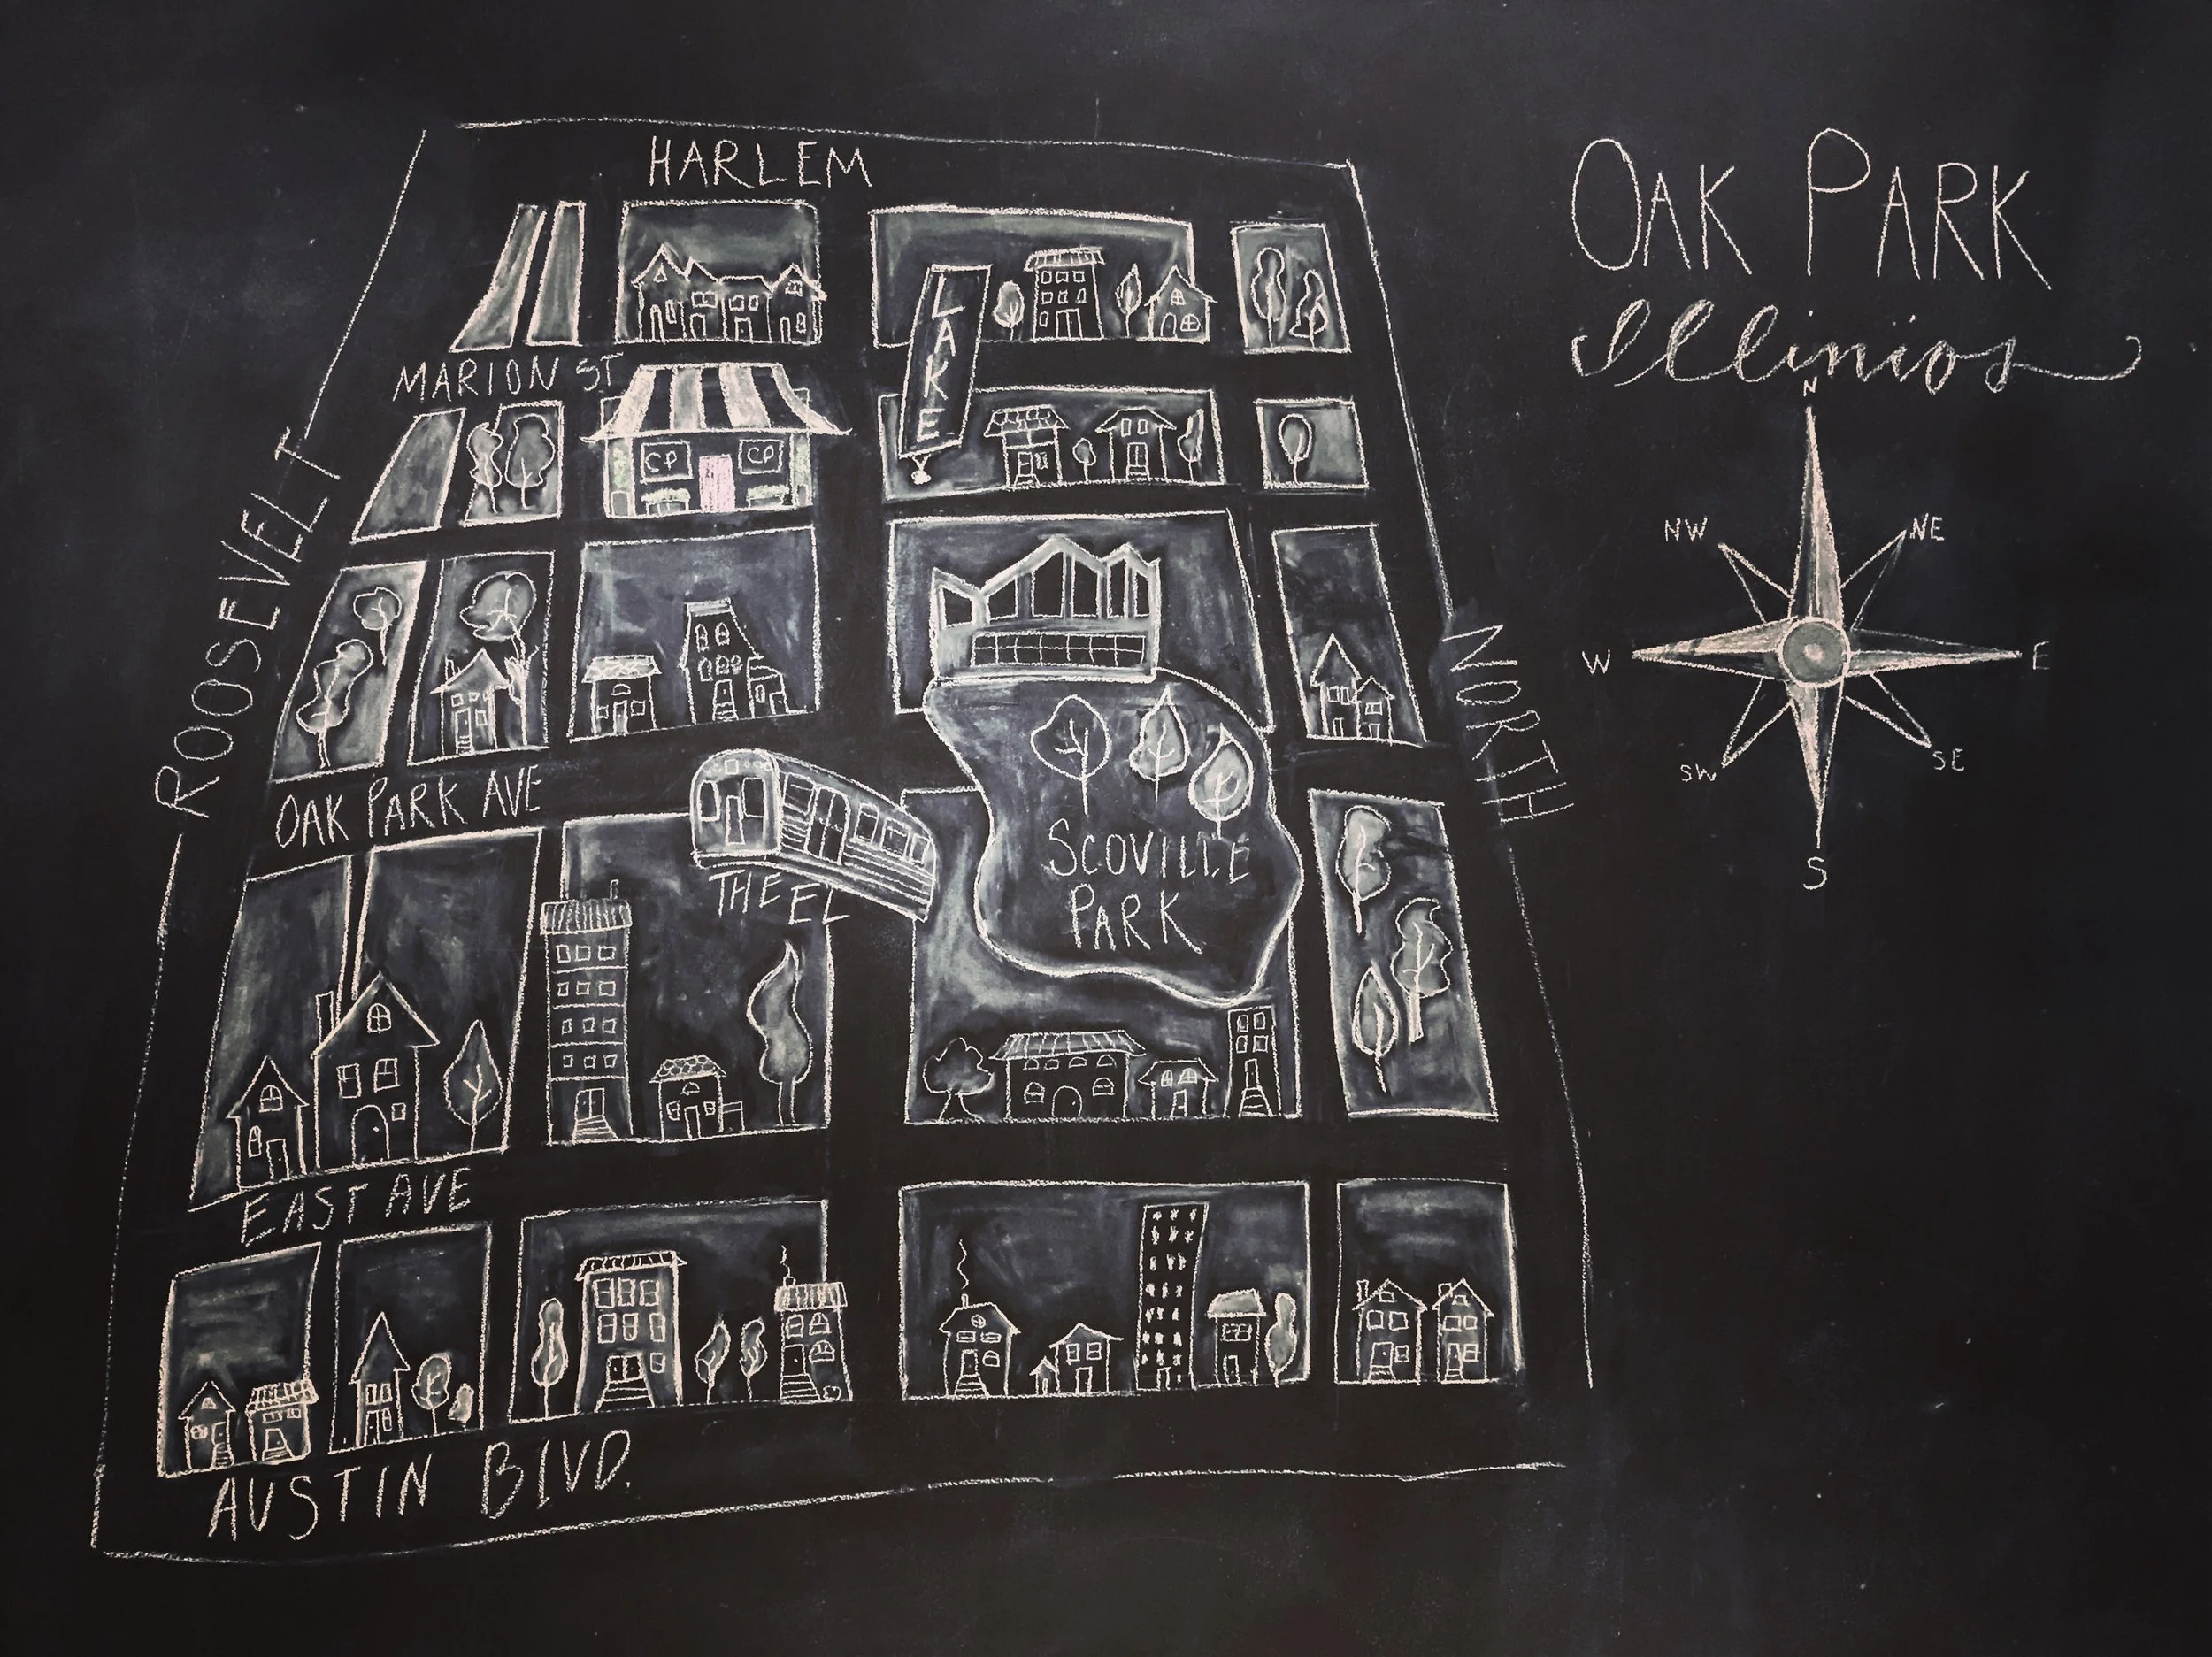 OAK PARK
Illinios
HARLEM
LAKE
MARION ST
CP CP
ROOSEVELT
NORTH
OAK PARK AVE
THE EL
SCOVILLE
PARK
EAST AVE
AUSTIN BLVD.
N
NW NE
W E
SW SE
S